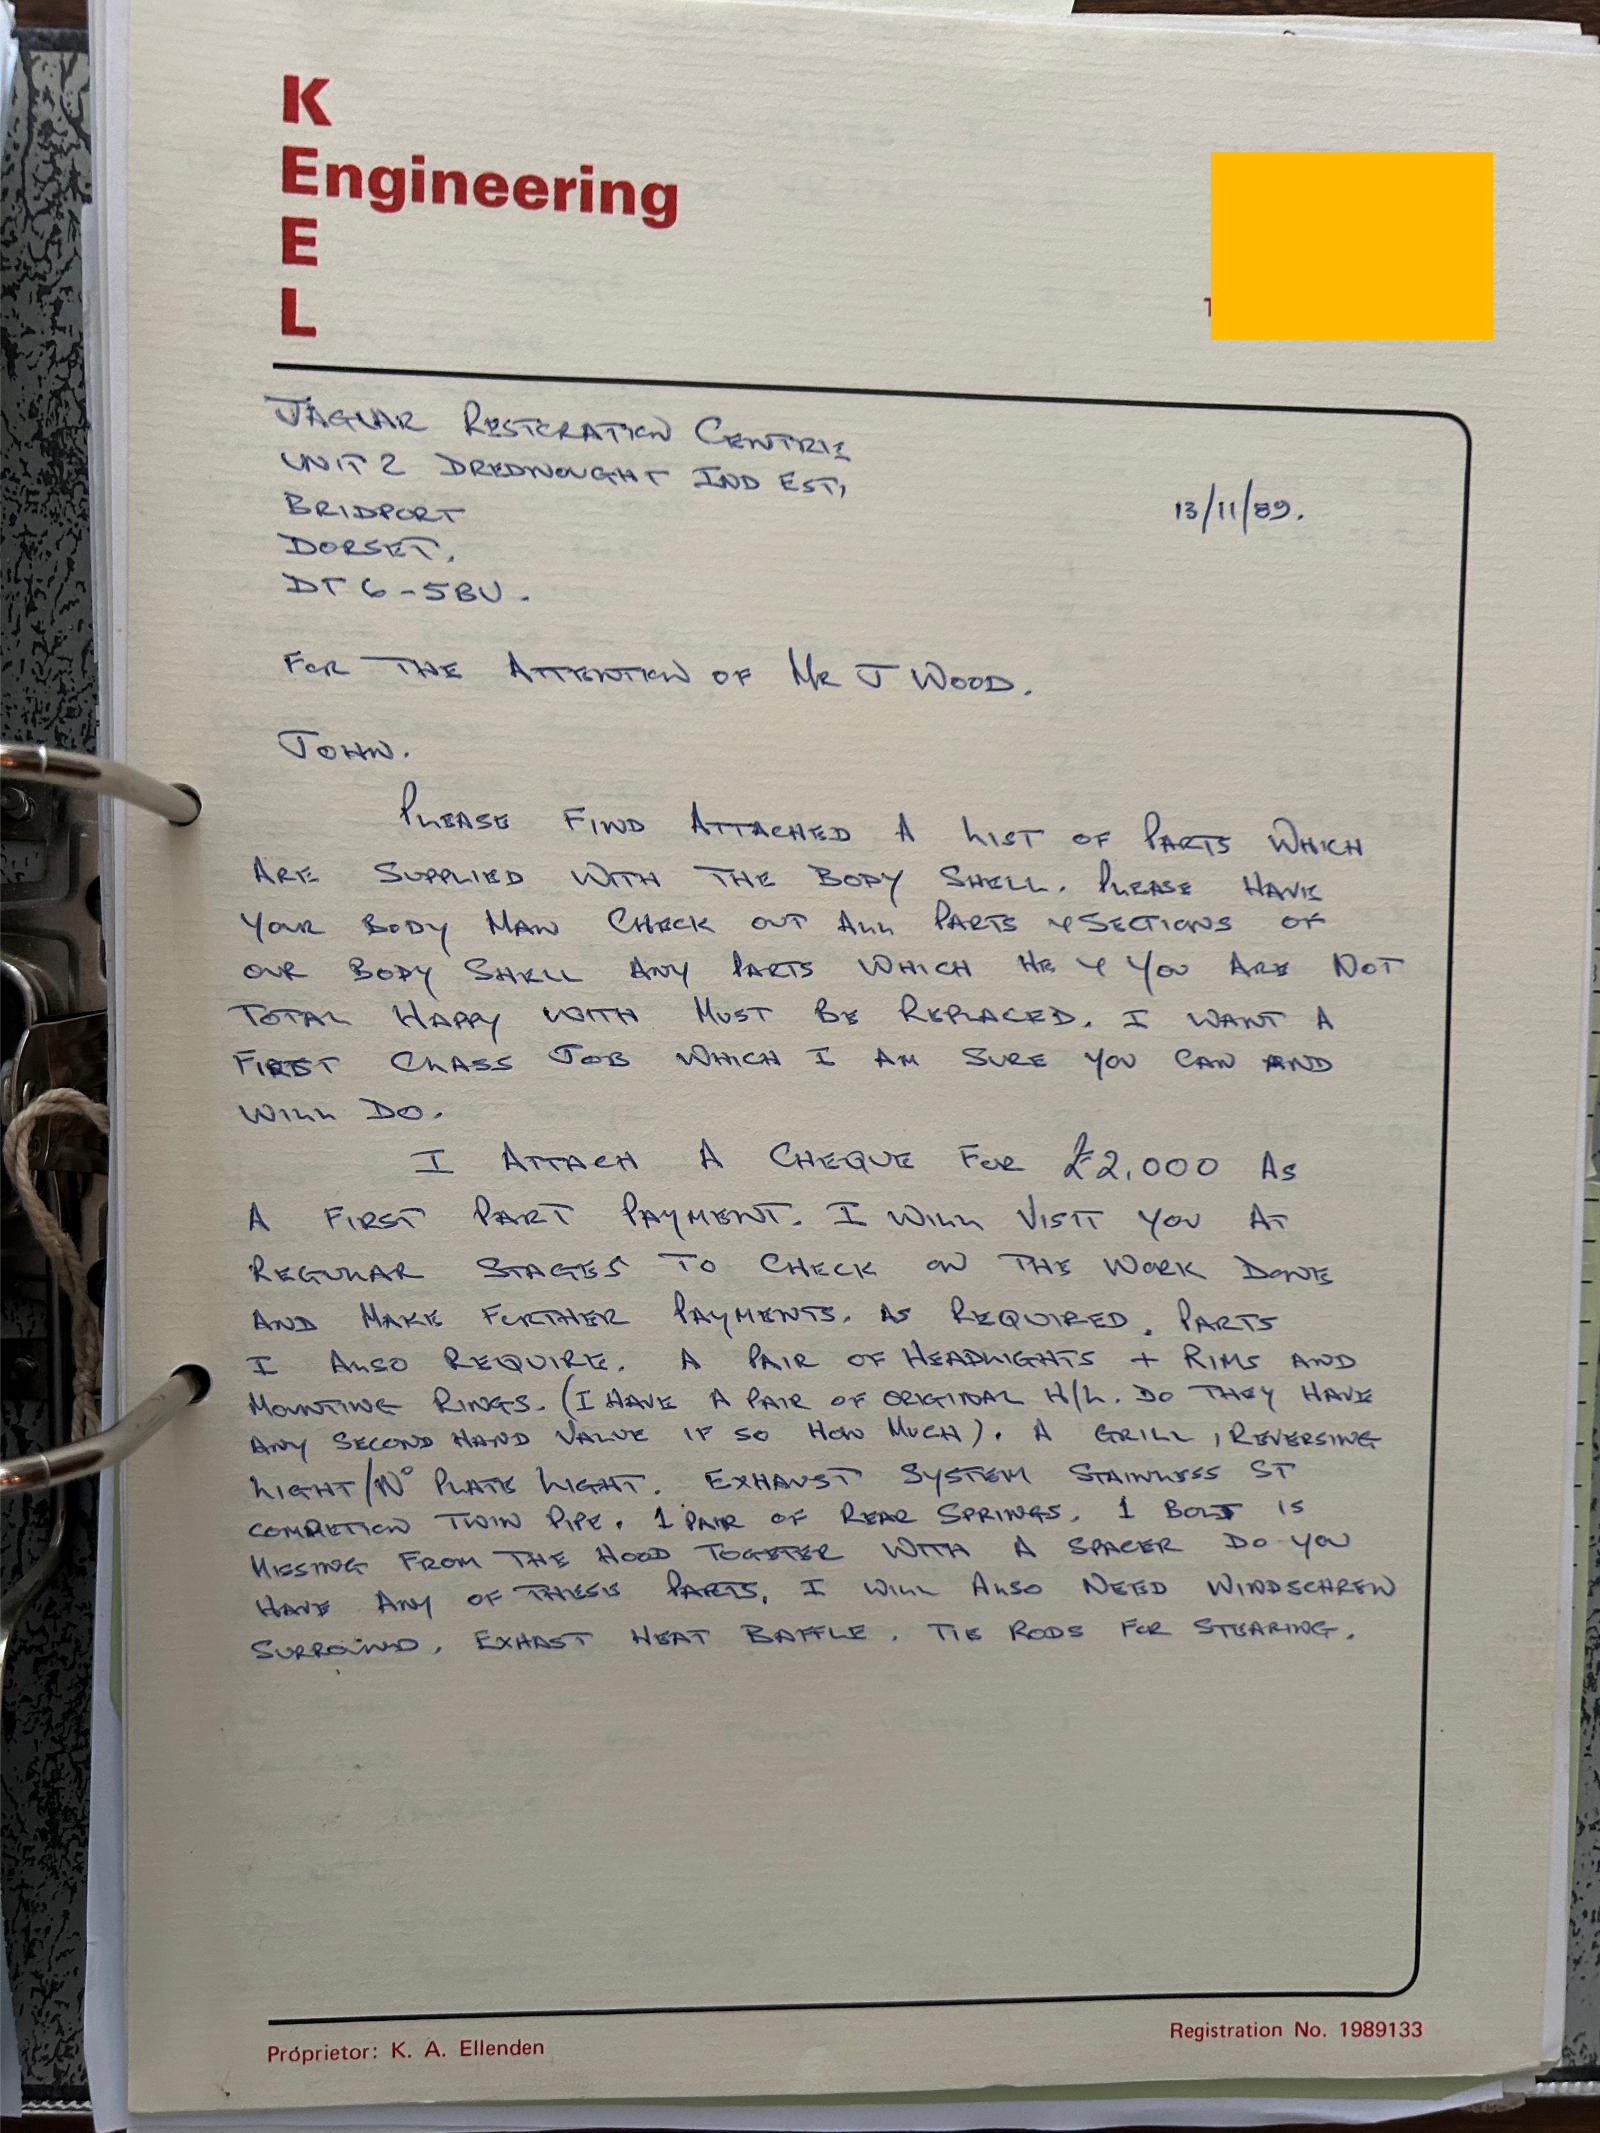 K
Engineering
E
L
T
JAGUAR RESTORATION CENTRE
UNIT 2 DREDNOUGHT IND EST,
BRIDPORT
DORSET.
DT6-5BU.
13/11/89.
FOR THE ATTENTION OF MR J WOOD.
JOHN.
PLEASE FIND ATTACHED A LIST OF PARTS WHICH
ARE SUPPLIED WITH THE BODY SHELL. PLEASE HAVE
YOUR BODY MAN CHECK OUT ALL PARTS & SECTIONS OF
OUR BODY SHELL ANY PARTS WHICH HE & YOU ARE NOT
TOTAL HAPPY WITH MUST BE REPLACED. I WANT A
FIRST CLASS JOB WHICH I AM SURE YOU CAN AND
WILL DO.
I ATTACH A CHEQUE FOR £2,000 AS
A FIRST PART PAYMENT. I WILL VISIT YOU AT
REGULAR STAGES TO CHECK ON THE WORK DONE
AND MAKE FURTHER PAYMENTS. AS REQUIRED. PARTS
I ALSO REQUIRE. A PAIR OF HEADLIGHTS + RIMS AND
MOUNTING RINGS. (I HAVE A PAIR OF ORIGINAL H/L. DO THEY HAVE
ANY SECOND HAND VALUE IF SO HOW MUCH). A GRILL, REVERSING
LIGHT/No PLATE LIGHT. EXHAUST SYSTEM STAINLESS ST
TWIN PIPE. 1 PAIR OF REAR SPRINGS. 1 BOLT IS
MISSING FROM THE HOOD TOGETER WITH A SPACER DO YOU
HAVE ANY OF THESE PARTS, I WILL ALSO NEED WINDSCREW
SURROUND, EXHAST HEAT BAFFLE. TIE RODS FOR STEARING.
Proprietor: K. A. Ellenden
Registration No. 1989133